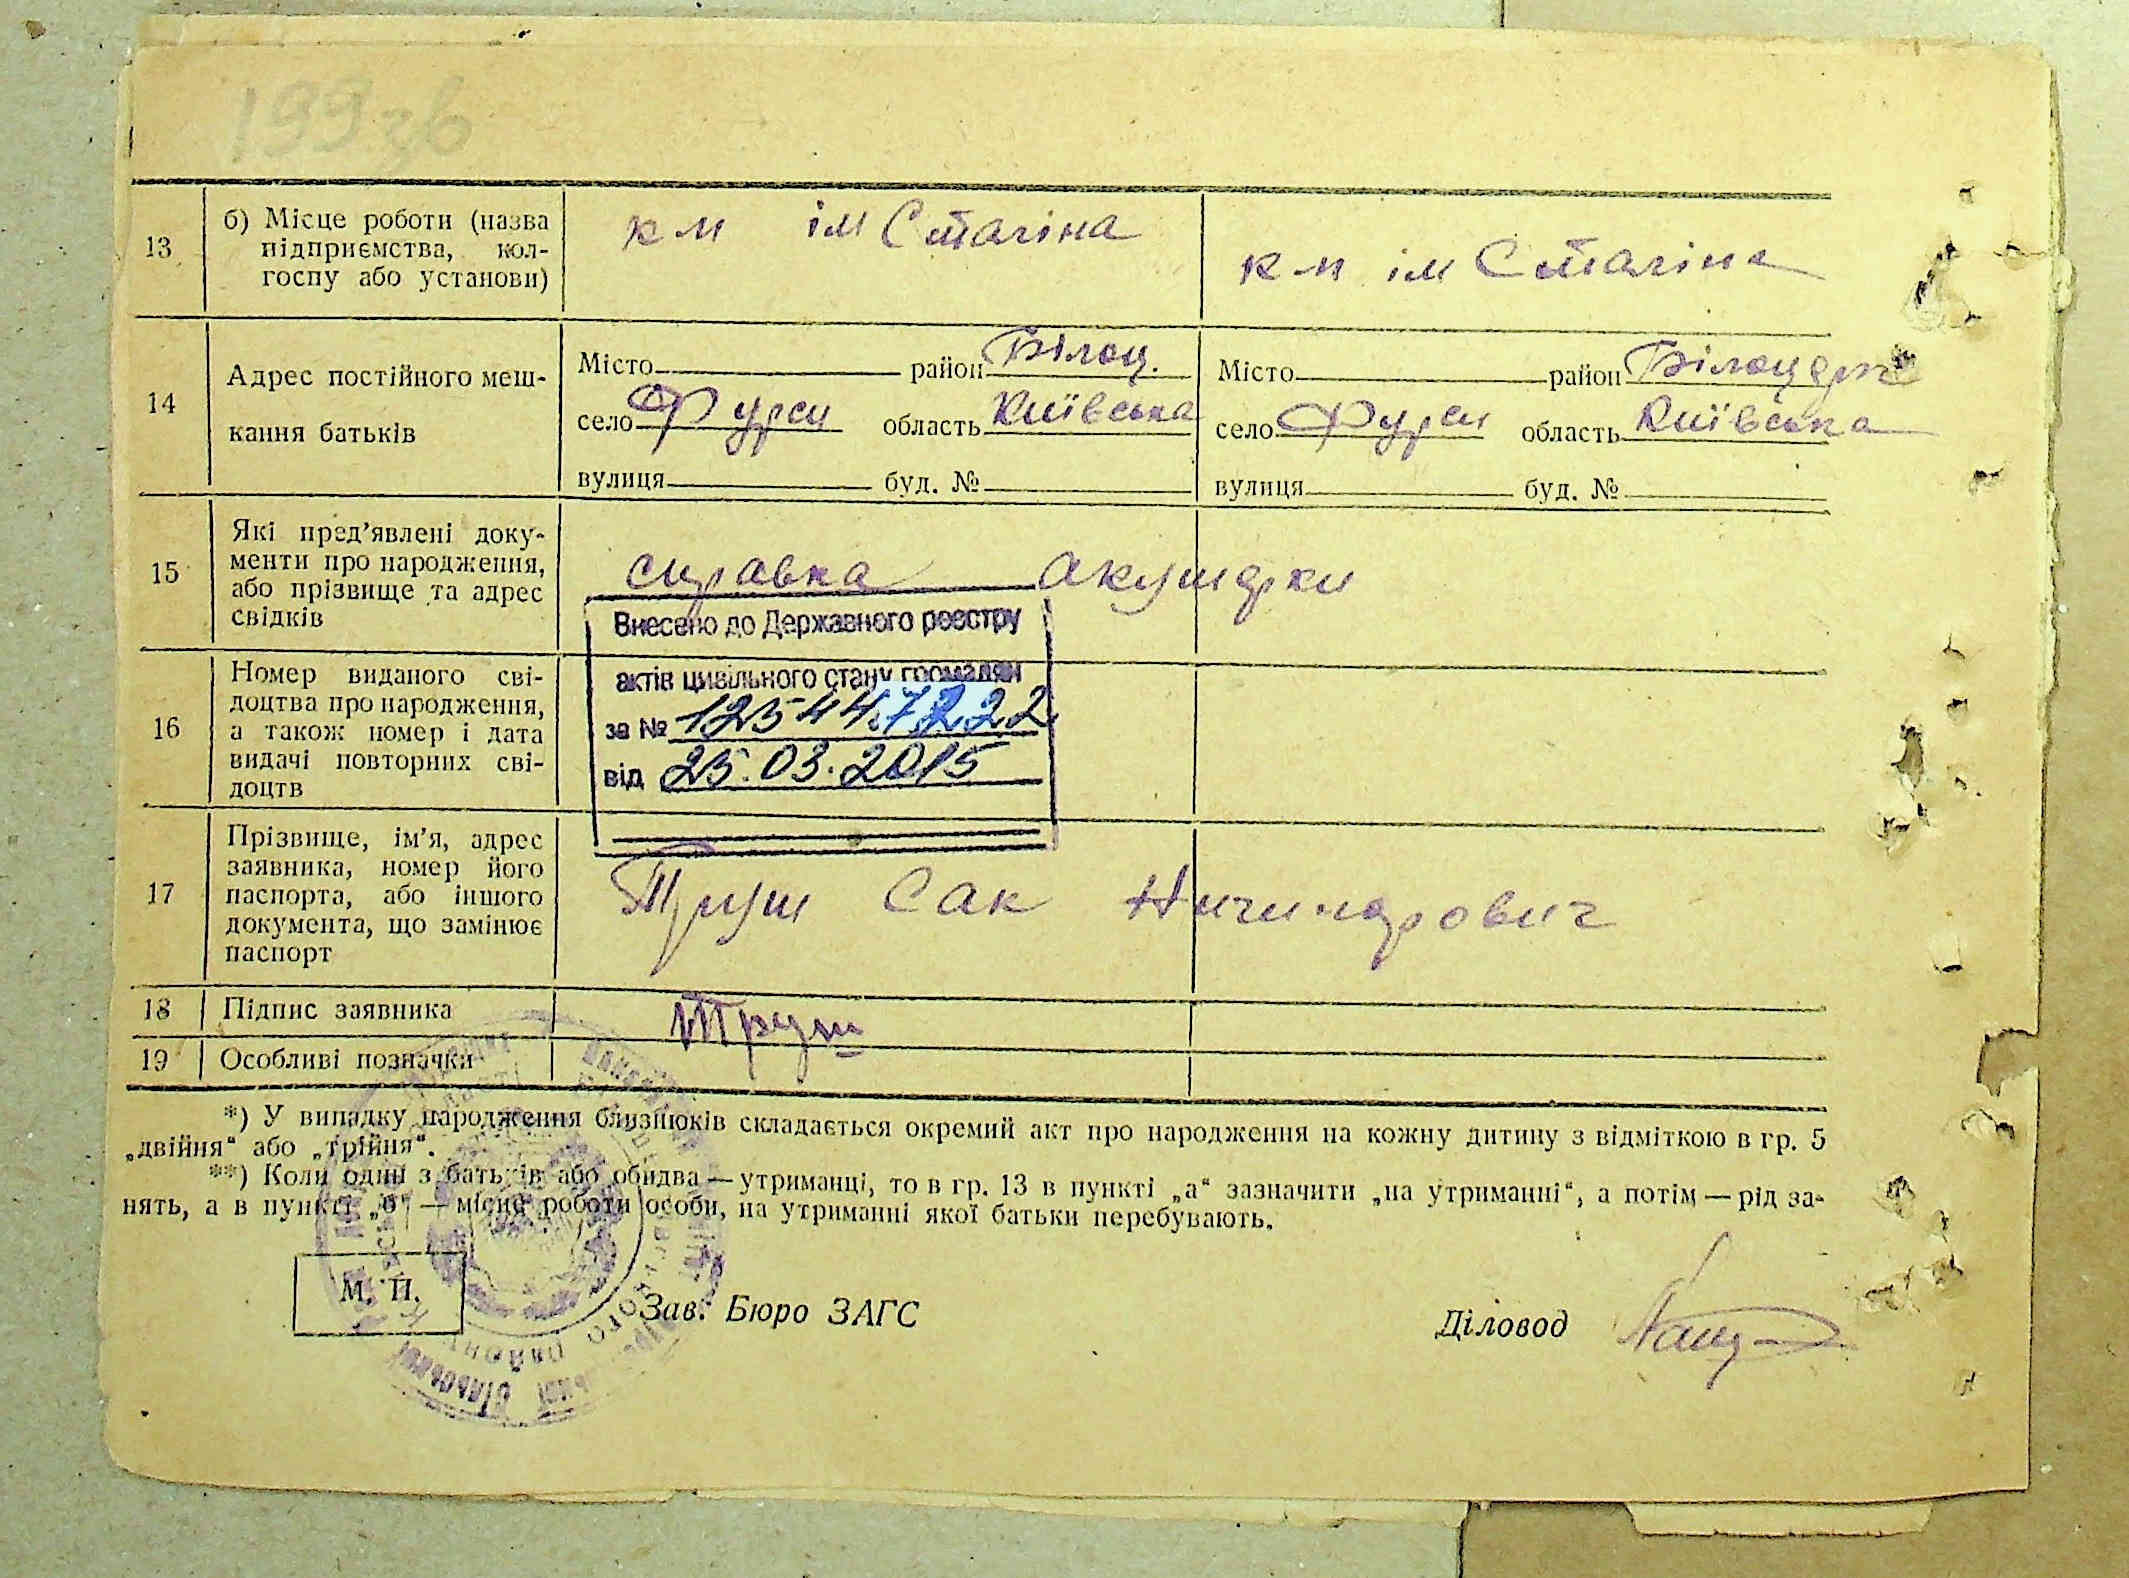 199зв
13 б) Місце роботи (назва підприємства, кол-госпу або установи) км ім Сталіна км ім Сталіна
14 Адрес постійного меш-
кання батьків
Місто район Білоц. Місто район Білоцерк
село Фурси область Київська село Фурси область Київська
вулиця буд. № вулиця буд. №
15 Які пред'явлені доку-
менти про народження,
або прізвище та адрес
свідків
справка акушерки
Внесено до Державного реєстру
актів цивільного стану громадян
за № 125447222
від 25.03.2015
16 Номер виданого сві-
доцтва про народження,
а також номер і дата
видачі повторних сві-
доцтв
17 Прізвище, ім'я, адрес
заявника, номер його
паспорта, або іншого
документа, що замінює
паспорт
Труш Сак Ничипорович
18 Підпис заявника Труш
19 Особливі позначки
*) У випадку народження близнюків складається окремий акт про народження на кожну дитину з відміткою в гр. 5
„двійня“ або „трійня“.
**) Коли один з батьків або обидва — утриманці, то в гр. 13 в пункті „а“ зазначити „на утриманні“, а потім — рід за-
нять, а в пункті „б“ — місце роботи особи, на утриманні якої батьки перебувають.
М. П.
Зав. Бюро ЗАГС Діловод